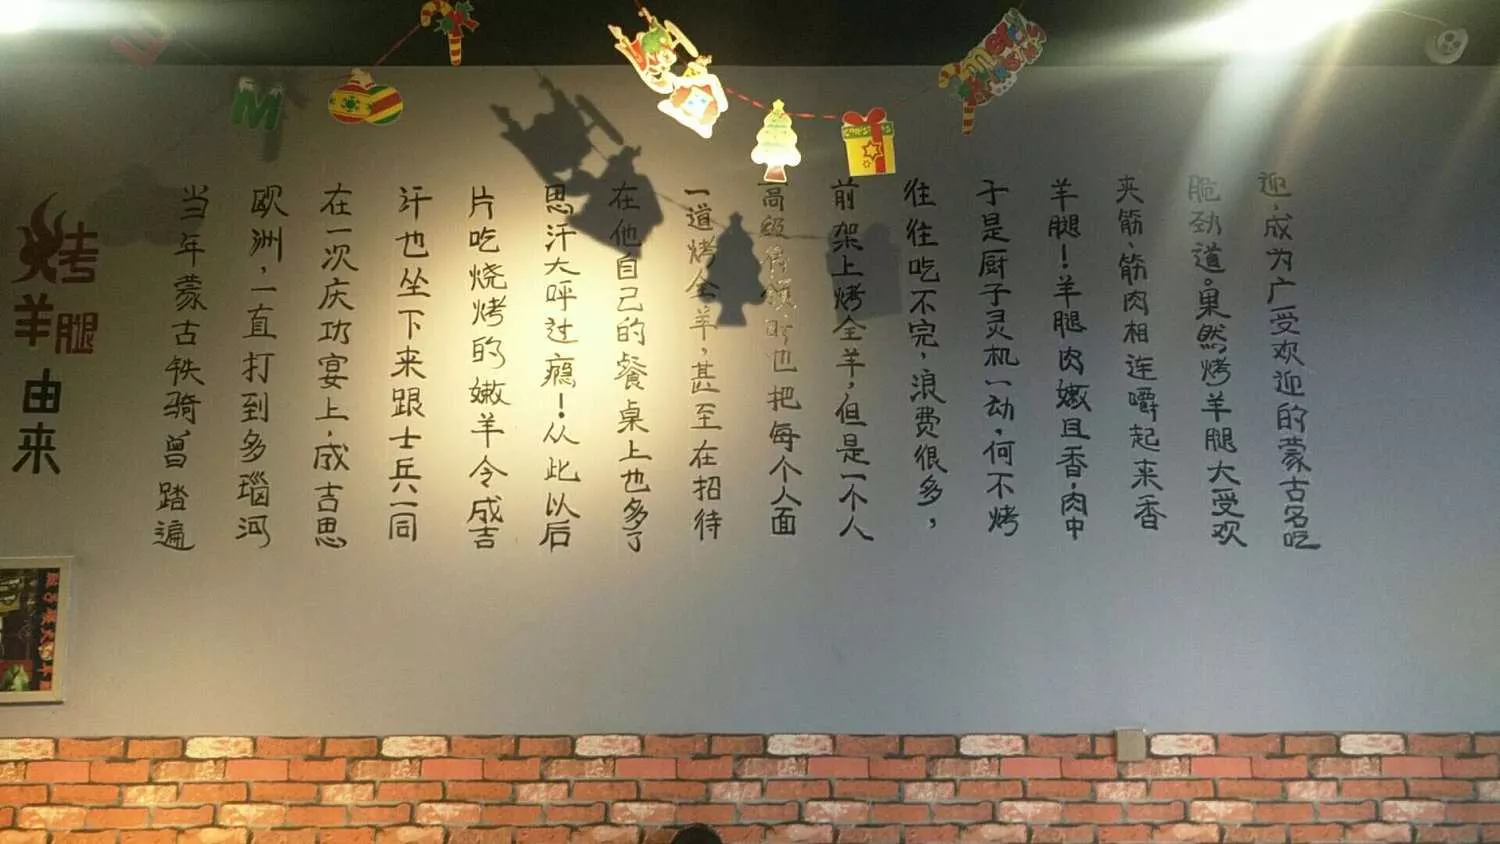 烤羊腿由来
当年蒙古铁骑曾踏遍
欧洲，一直打到多瑙河
在一次庆功宴上，成吉思
汗也坐下来跟士兵一同
片吃烧烤的嫩羊令成吉
思汗大呼过瘾！从此以后
在他自己的餐桌上也多了
一道烤全羊，甚至在招待
高级将领时也把每个人面
前架上烤全羊，但是一个人
往往吃不完，浪费很多，
于是厨子灵机一动，何不烤
羊腿！羊腿肉嫩且香，肉中
夹筋、筋肉相连嚼起来香
脆劲道。果然烤羊腿大受欢
迎，成为广受欢迎的蒙古名吃
M